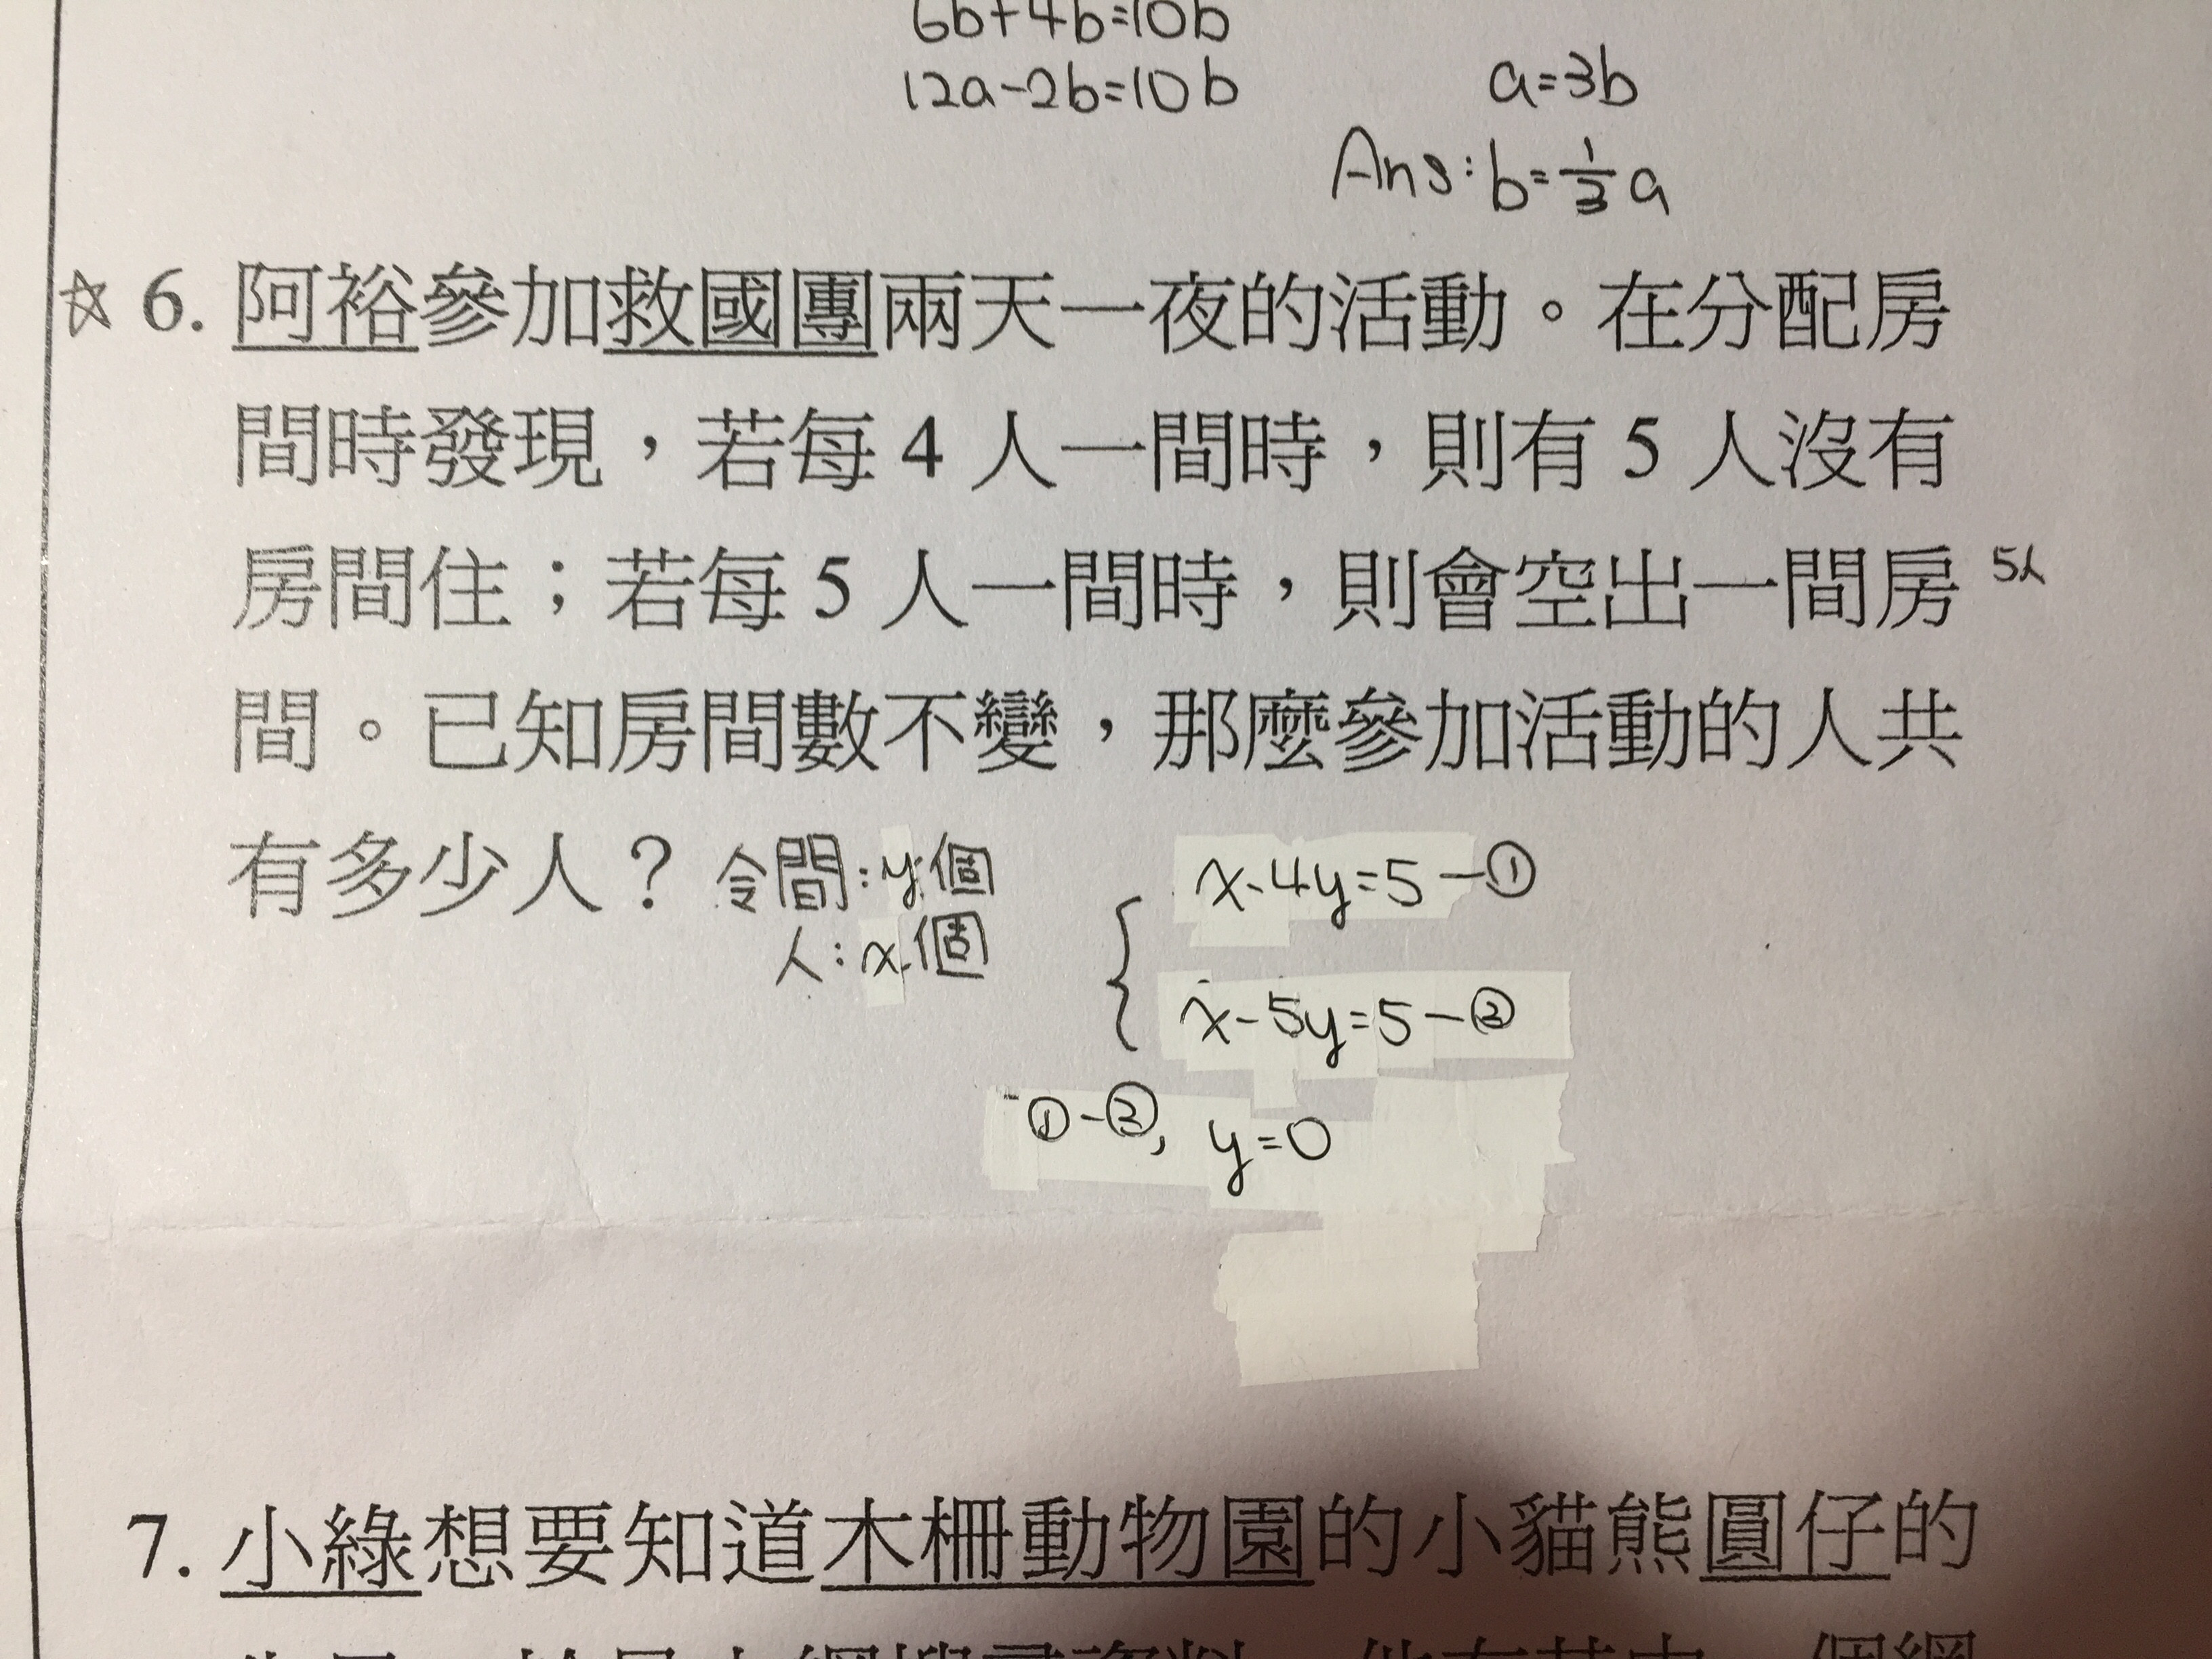 6b+4b=10b
12a-2b=10b
a=3b
Ans:b=1/3 a
☆ 6. 阿裕參加救國團兩天一夜的活動。在分配房
間時發現,若每 4 人一間時,則有 5 人沒有
房間住;若每 5 人一間時,則會空出一間房 5人
間。已知房間數不變,那麼參加活動的人共
有多少人? 令間:y個
人:x個
x-4y=5-①
x-5y=5-②
①-②, y=0
7. 小綠想要知道木柵動物園的小貓熊圓仔的